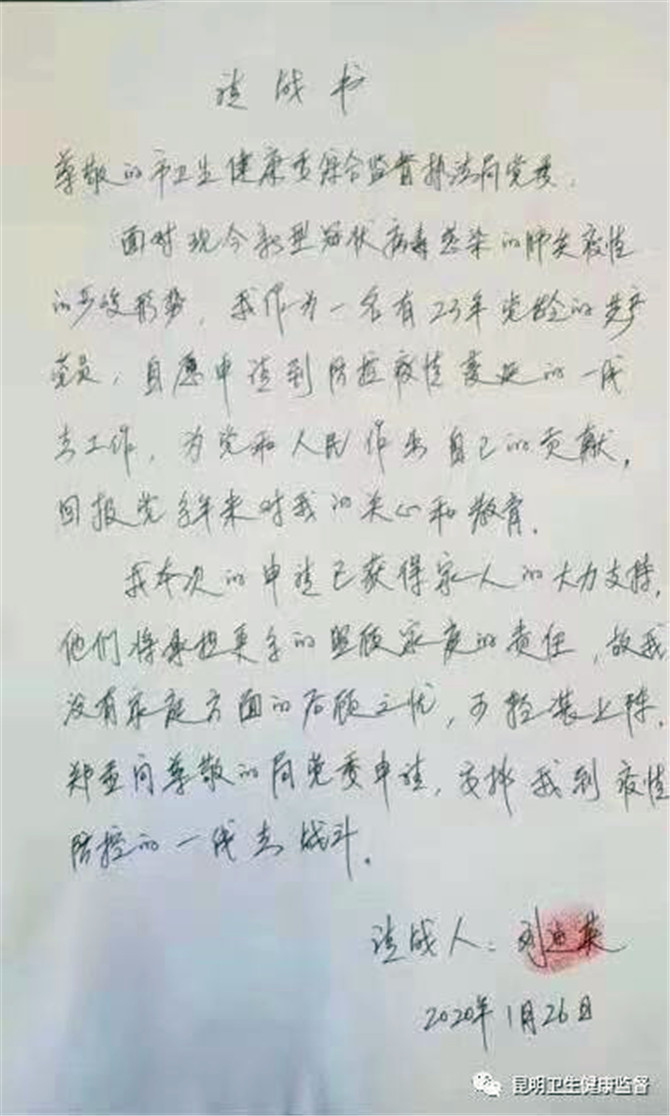 请战书
尊敬的市卫生健康委综合监督执法局党委,
面对现今新型冠状病毒感染的肺炎疫情
的严峻形势,我作为一名有23年党龄的共产
党员,自愿申请到防控疫情蔓延的一线
去工作,为党和人民作出自己的贡献,
回报党多年来对我的关心和教育。
我本次的申请已获得家人的大力支持,
他们将承担更多的照顾家庭的责任,故我
没有家庭方面的后顾之忧,可轻装上阵,
郑重向尊敬的局党委申请,安排我到疫情
防控的一线去战斗。
请战人:刘英
2020年1月26日
昆明卫生健康监督